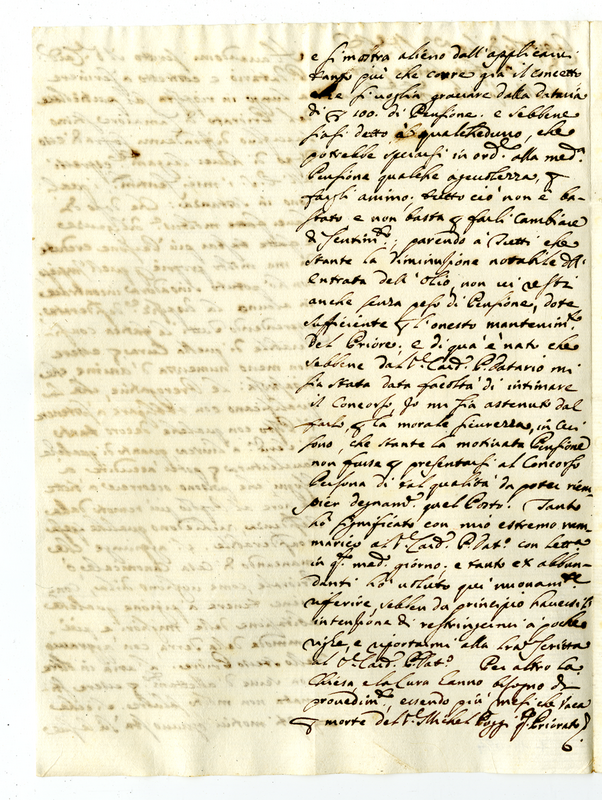 e si mostra alieno dall'applicarvi
tanto più che corre già il concetto
che si voglia gravare dalla Dataria
di 100. di Pensione. e sebbene
siasi detto à qualcheduno, che
potrebbe sperarsi in ord.e alla med.a
Pensione qualche agevolezza, p
fargli animo. tutto ciò non è ba-
stato e non basta p farli cambiare
di Sentim.to; parendo à Tutti che
stante la diminuzione notabile dell'
Entrata dell'Olio, non vi resti
anche senza peso di Pensione, dote
sufficiente p l'onesto mantenim.to
del Priore. e di qua è nato che
sebbene dal S.r Card. P. Datario mi
sia stata data facoltà di intimare
il Concorso. Io mi sia astenuto dal
farlo, p la morale sicurezza, in cui
sono, che stante la motivata Pensione
non fosse p presentarsi al Concorso
Persona di tal qualità da poter riem-
pier degnam.te quel Posto. Tanto
hò significato con mio estremo ram-
marico al S.r Card. P. Dat.o con lettera
in q.to med.o giorno. e tanto ex abbun-
danti hò voluto qui nuovam.te
riferire, sebben da principio havessi
intenzione di restringermi à poche
righe, e riportarmi alla lra scritta
al S.r Card. P. Dat.o Per altro la
Chiesa, e la Cura hanno bisogno di
provedim.to, essendo più mesi che vaca
p morte del S.r Michel Poggi Priorato
6